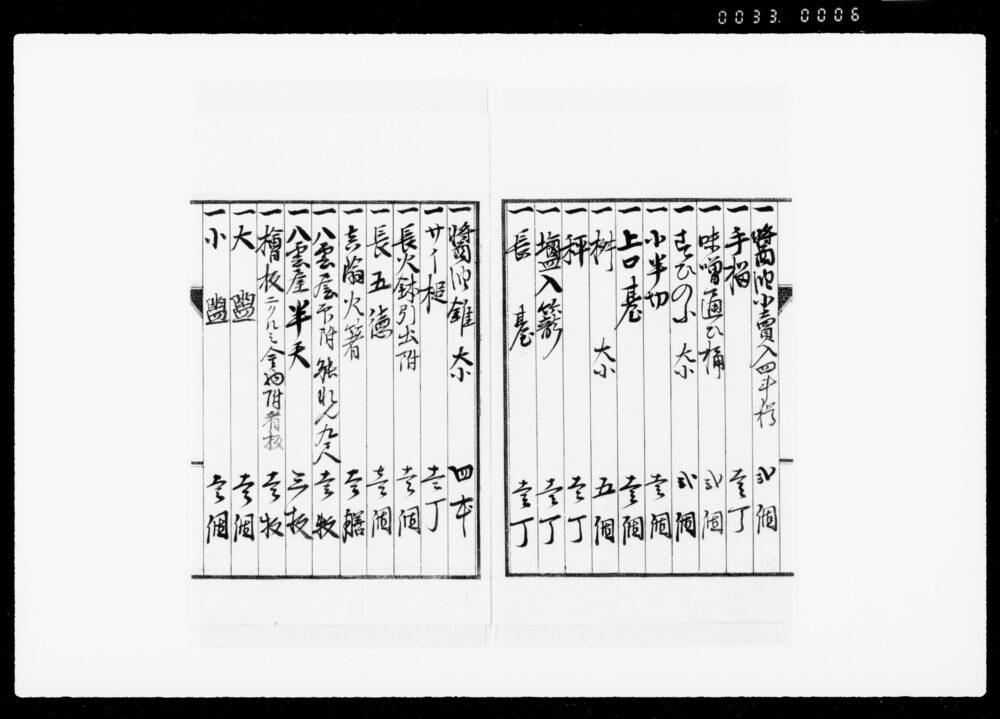 0033.0006
一醤油小賣入四斗樽 弐個
一手溜 壱丁
一味噌通ひ桶 弐個
一 大小 弐個
一小半切 壱個
一上口基 壱個
一桝 大小 五個
一秤 壱丁
一塩入 壱丁
一長基 壱丁
一醤油錐 大小 四本
一サイ槌 壱丁
一長火鉢引出附 壱個
一長五徳 壱個
一真鍮火箸 壱膳
一八雲 附 壱枚
一八雲産半天 三枚
一檜板 金物附看板 壱枚
一大盥 壱個
一小盥 壱個